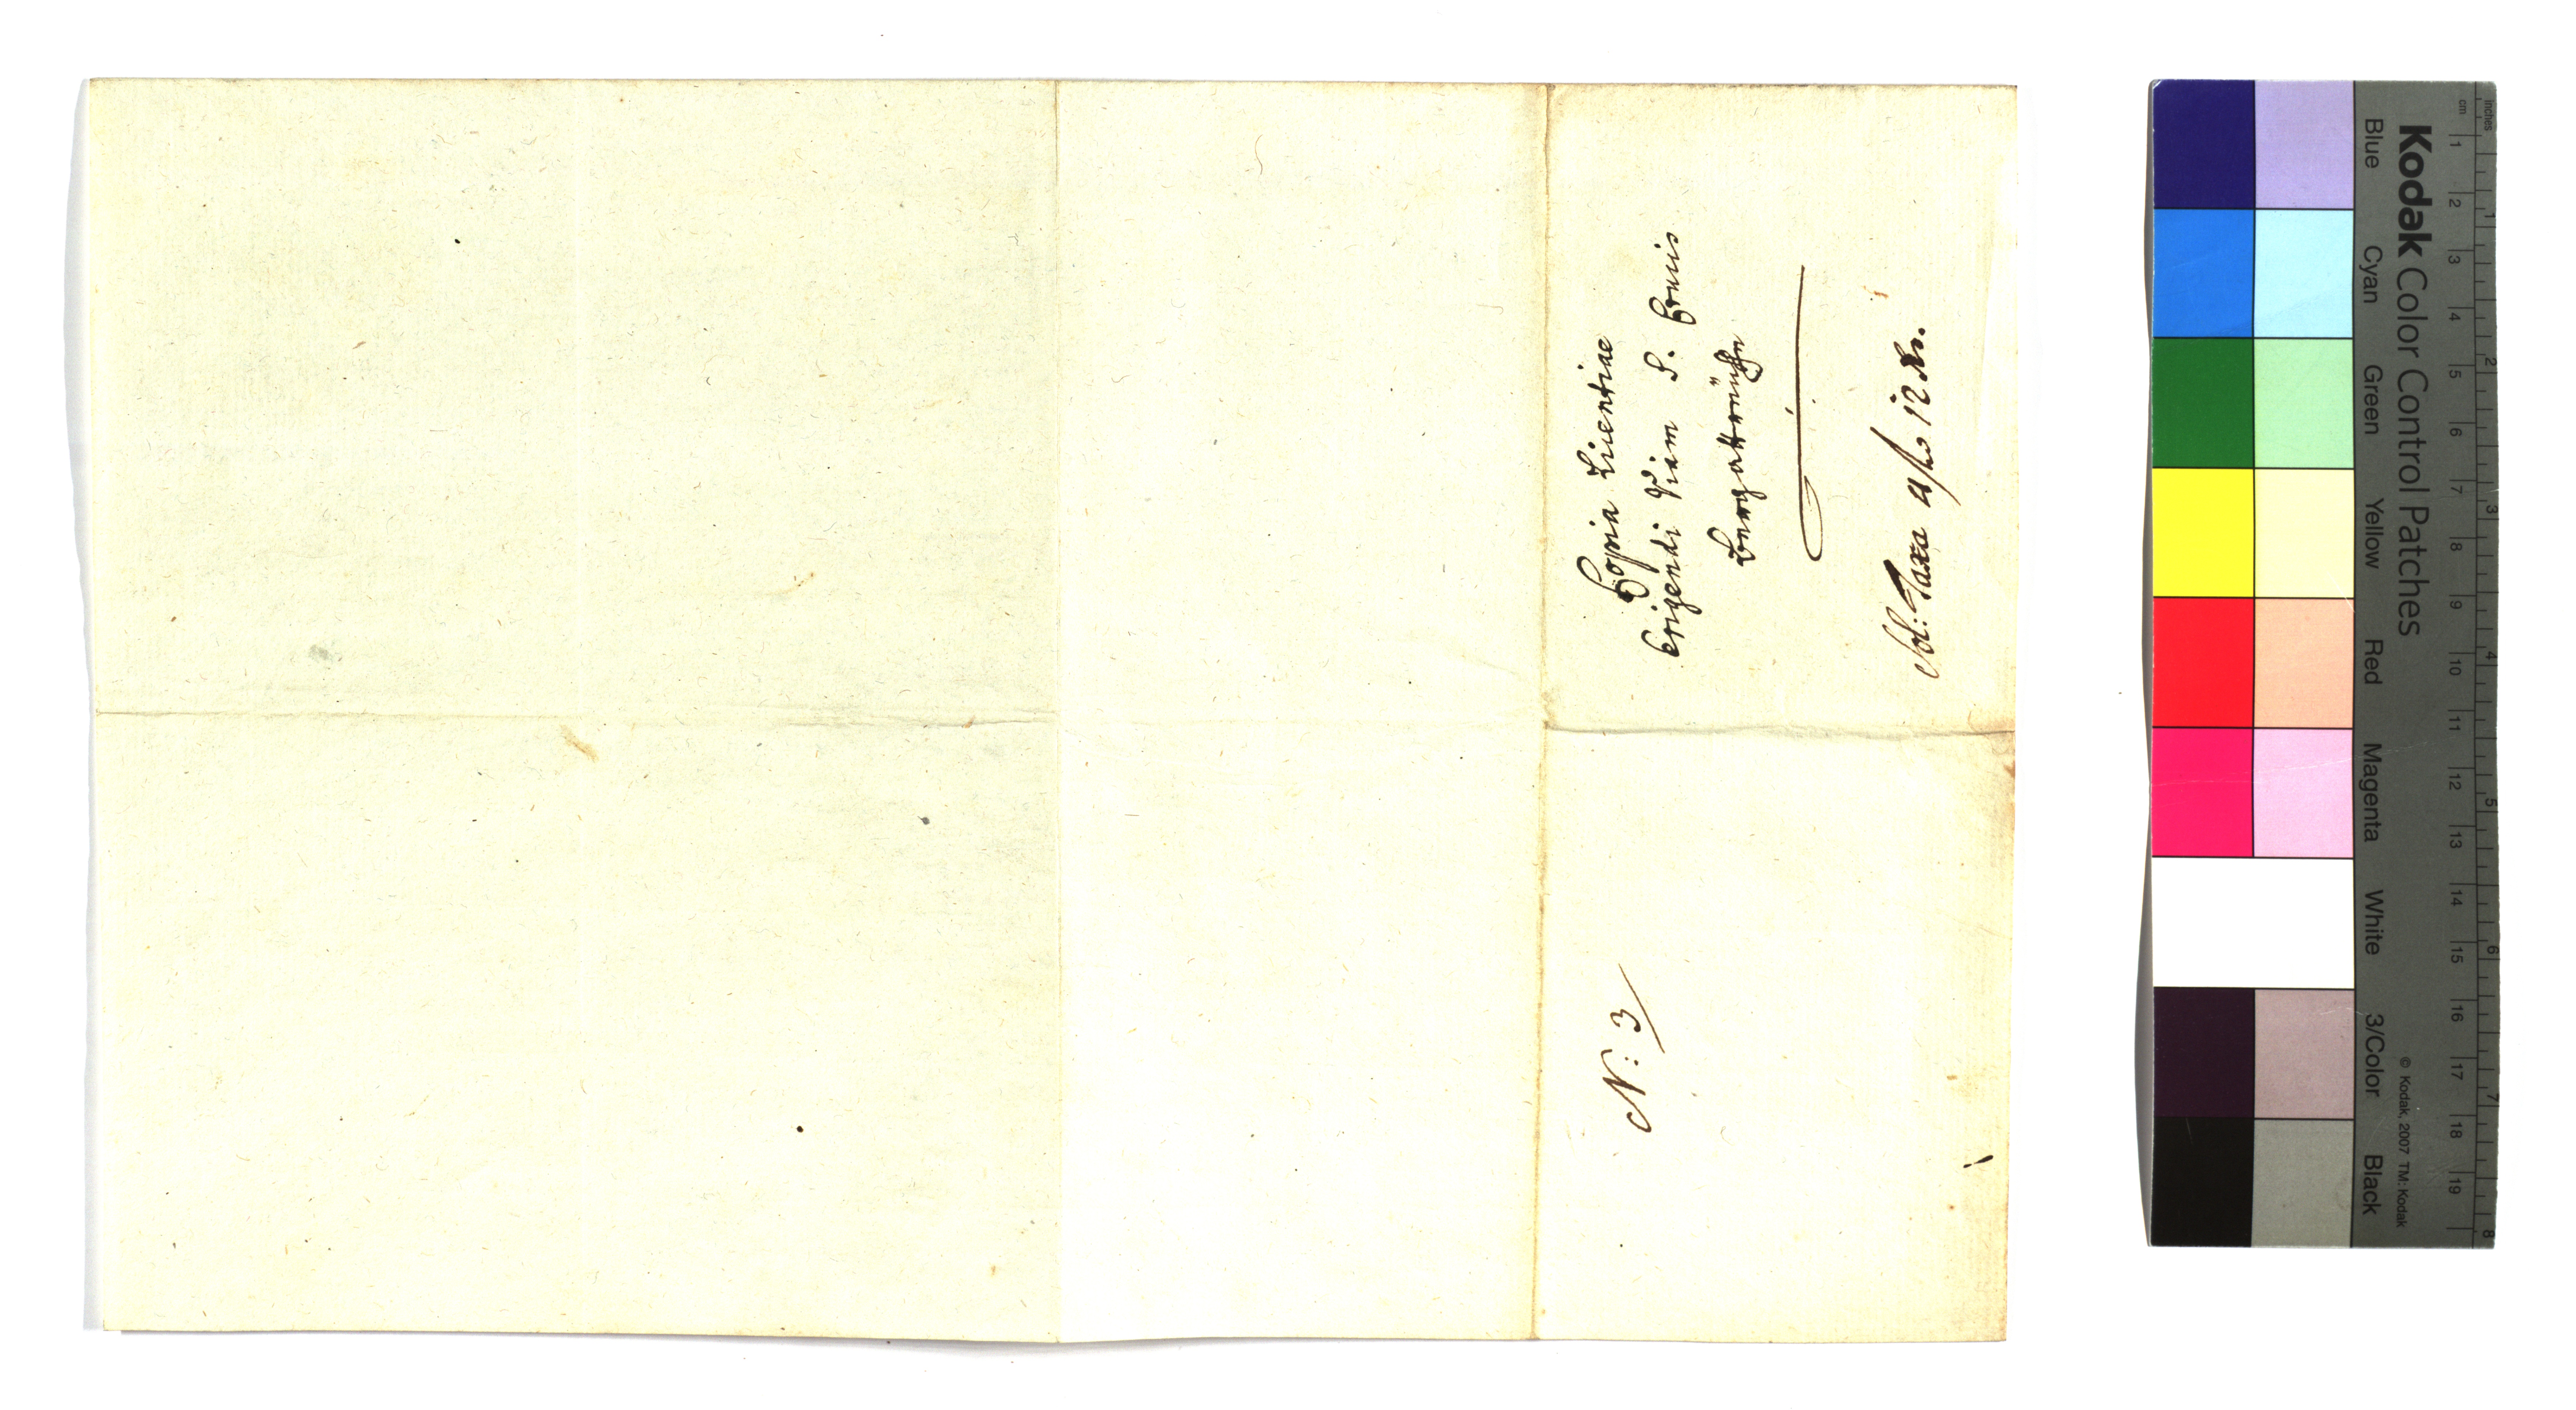 Copia Licentiae
Erigendi Viam S. Crucis
Bergattrüchn
Sol: Taxa 4 f 12 Xr.
N: 3
Kodak Color Control Patches
Blue Cyan Green Yellow Red Magenta White 3/Color Black
© Kodak, 2007 TM: Kodak
cm 1 2 3 4 5 6 7 8 9 10 11 12 13 14 15 16 17 18 19
Inches 1 2 3 4 5 6 7 8